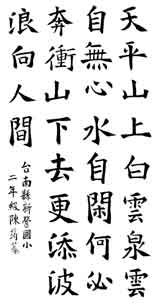 天平山上白雲泉雲
自無心水自閑何必
奔衝山下去更添波
浪向人間
台南縣新營國小
二年級陳